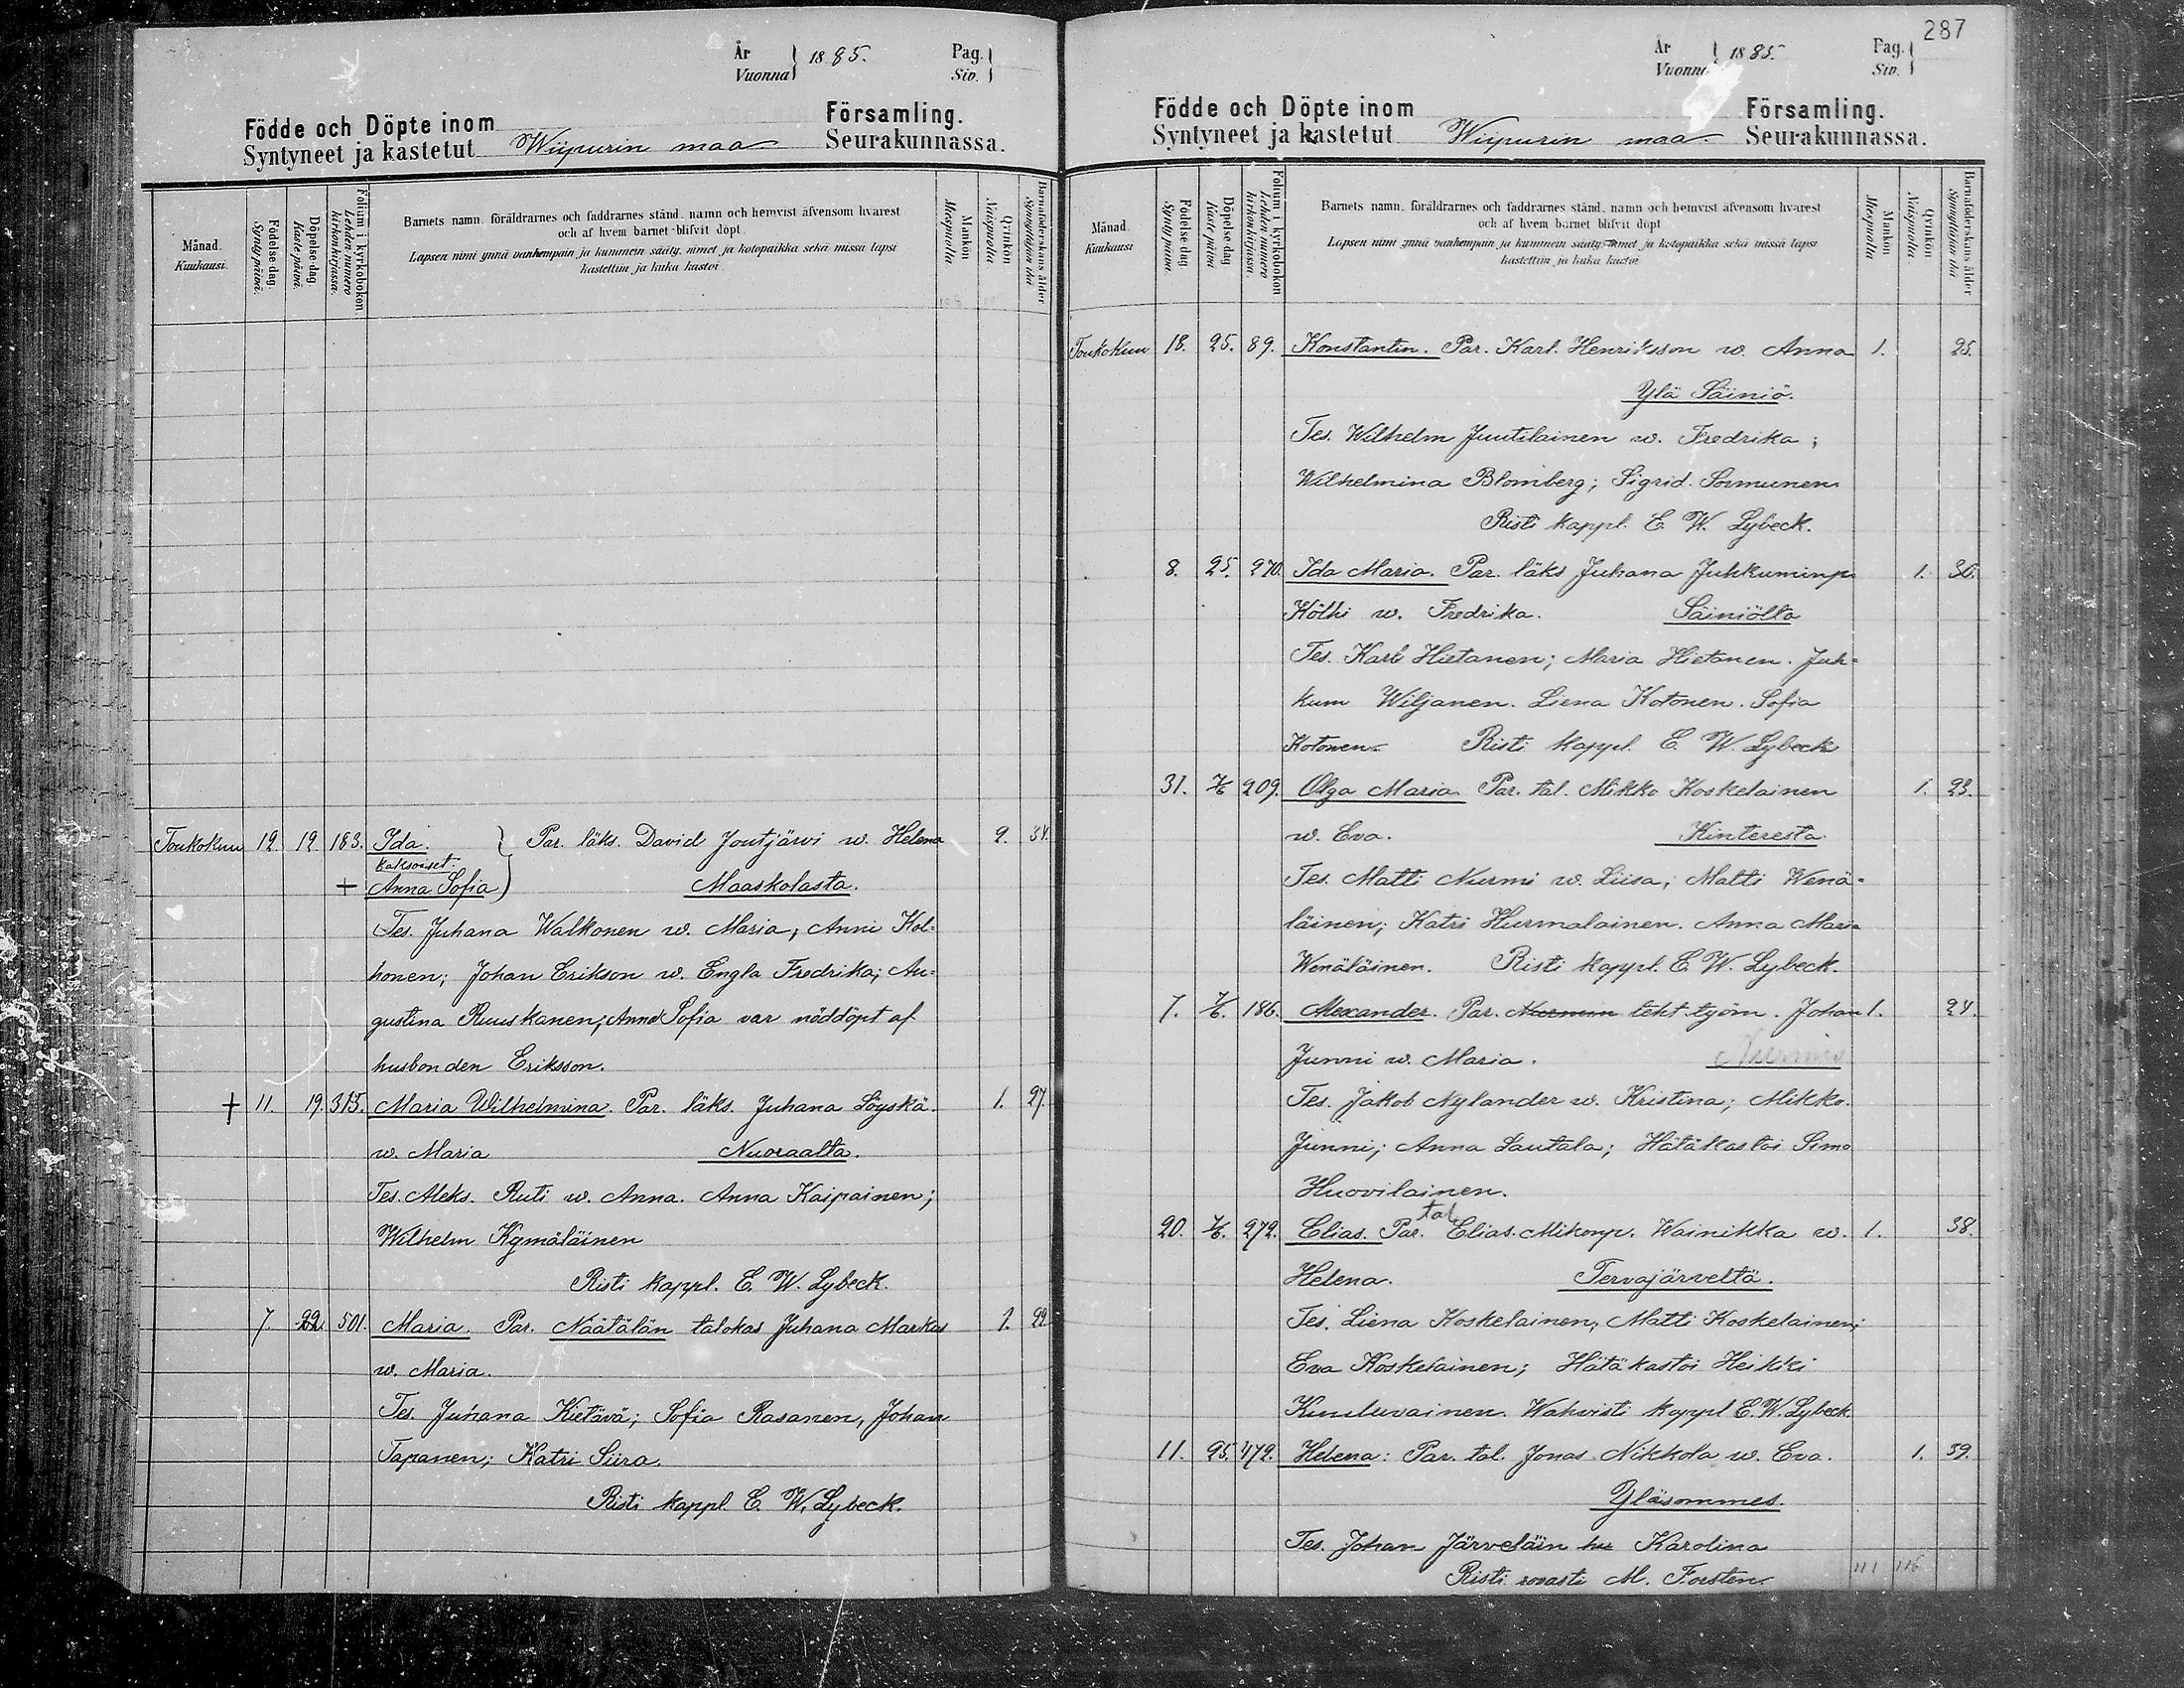 År
Vuonna } 1885.
Pag.
Siv. }
Födde och Döpte inom
Syntyneet ja kastetut
Wiipurin maa
Församling.
Seurakunnassa.
Månad.
Kuukausi.
Födelse dag.
Synty päivä.
Döpelse dag
Kaste päivä.
Folium i kyrkoboken
Lehden numero kirkonkirjassa.
Barnets namn, föräldrarnes och faddrarnes stånd, namn och hemvist äfvensom hvarest
och af hvem barnet blifvit döpt.
Lapsen nimi ynnä vanhempain ja kummein sääty, nimet ja kotopaikka sekä missä lapsi
kastettiin ja kuka kastoi.
Mankön
Miespuolta
Qvinkön
Naispuolta
Barnaföderskans ålder
Synnyttäjän ikä
Toukokuu 12. 19. 183. Ida. } Par. läks. David Joutjärvi w. Helena 2. 34.
kaksoiset.
+ Anna Sofia } Maaskolasta.
Tes. Juhana Walkonen w. Maria, Anni Kol-
honen; Johan Erikson w. Engla Fredrika; Au-
gustina Ruuskanen; Anna Sofia var nöddöpt af
husbonden Eriksson.
+ 11. 19. 315. Maria Wilhelmina. Par. läks. Juhana Löyskä 1. 27.
w. Maria Nuoraalta.
Tes. Aleks. Ruti w. Anna. Anna Kaipainen;
Wilhelm Kymäläinen
Risti kappl. E. W. Lybeck.
7. 22. 501. Maria. Par. Näätälän talokas Juhana Markus 1. 22.
w. Maria.
Tes. Juhana Kietävä; Sofia Rasanen, Johan
Tapanen; Katri Siira.
Risti kappl. E. W. Lybeck.
287
År
Vuonna } 1885.
Pag.
Siv. }
Födde och Döpte inom
Syntyneet ja kastetut
Wiipurin maa.
Församling.
Seurakunnassa.
Månad.
Kuukausi
Födelse dag.
Synty päivä.
Döpelse dag
Kaste päivä
Folium i kyrkoboken
Lehden numero kirkonkirjassa.
Barnets namn, föräldrarnes och faddrarnes stånd, namn och hemvist äfvensom hvarest
och af hvem barnet blifvit döpt
Lapsen nimi ynnä vanhempain ja kummein sääty, nimet ja kotopaikka sekä missä lapsi
kastettiin ja kuka kastoi
Mankön
Miespuolta
Qvinkön
Naispuolta.
Barnaföderskans ålder
Synnyttäjän ikä
Toukokuu 18. 25. 89. Konstantin. Par. Karl Henriksson w. Anna 1. 25.
Ylä Säiniö.
Tes. Wilhelm Juutilainen w. Fredrika;
Wilhelmina Blomberg; Sigrid Sormunen
Risti kappl. E. W. Lybeck.
8. 25. 270. Ida Maria. Par. läks Juhana Juhkuminp. 1. 30.
Kölhi w. Fredrika. Säiniöltä
Tes. Karl Hietanen; Maria Hietanen. Juh-
kum Wiljanen. Liena Kotonen. Sofia
Kotonen. Risti kappl. E. W. Lybeck
31. 7/6 209. Olga Maria Par. tal. Mikko Koskelainen 1. 23.
w. Eva. Kinteresta
Tes. Matti Nurmi w. Liisa; Matti Wenä-
läinen; Katri Hurmalainen. Anna Maria
Wenäläinen. Risti kappl. E. W. Lybeck.
7. 7/6. 186. Alexander. Par. Nurmin teht. työm. Johan 1. 24.
Junni w. Maria. Nurmis
Tes. Jakob Nylander w. Kristina; Mikko
Junni; Anna Lautala; Hätäkastoi Simo
Huovilainen.
20. 7/6. 272. Elias. Par. tal. Elias Mikonp. Wainikka w. 1. 38.
Helena. Tervajärveltä.
Tes. Liena Koskelainen; Matti Koskelainen;
Eva Koskelainen; Hätäkastoi Heikki
Kuuluvainen. Wahvisti kappl E. W. Lybeck.
11. 25. 472. Helena: Par. tal. Jonas Nikkola w. Eva. 1. 39.
Yläsommes.
Tes. Johan Järveläin hu Karolina
Risti rovasti M. Forsten.
111 116